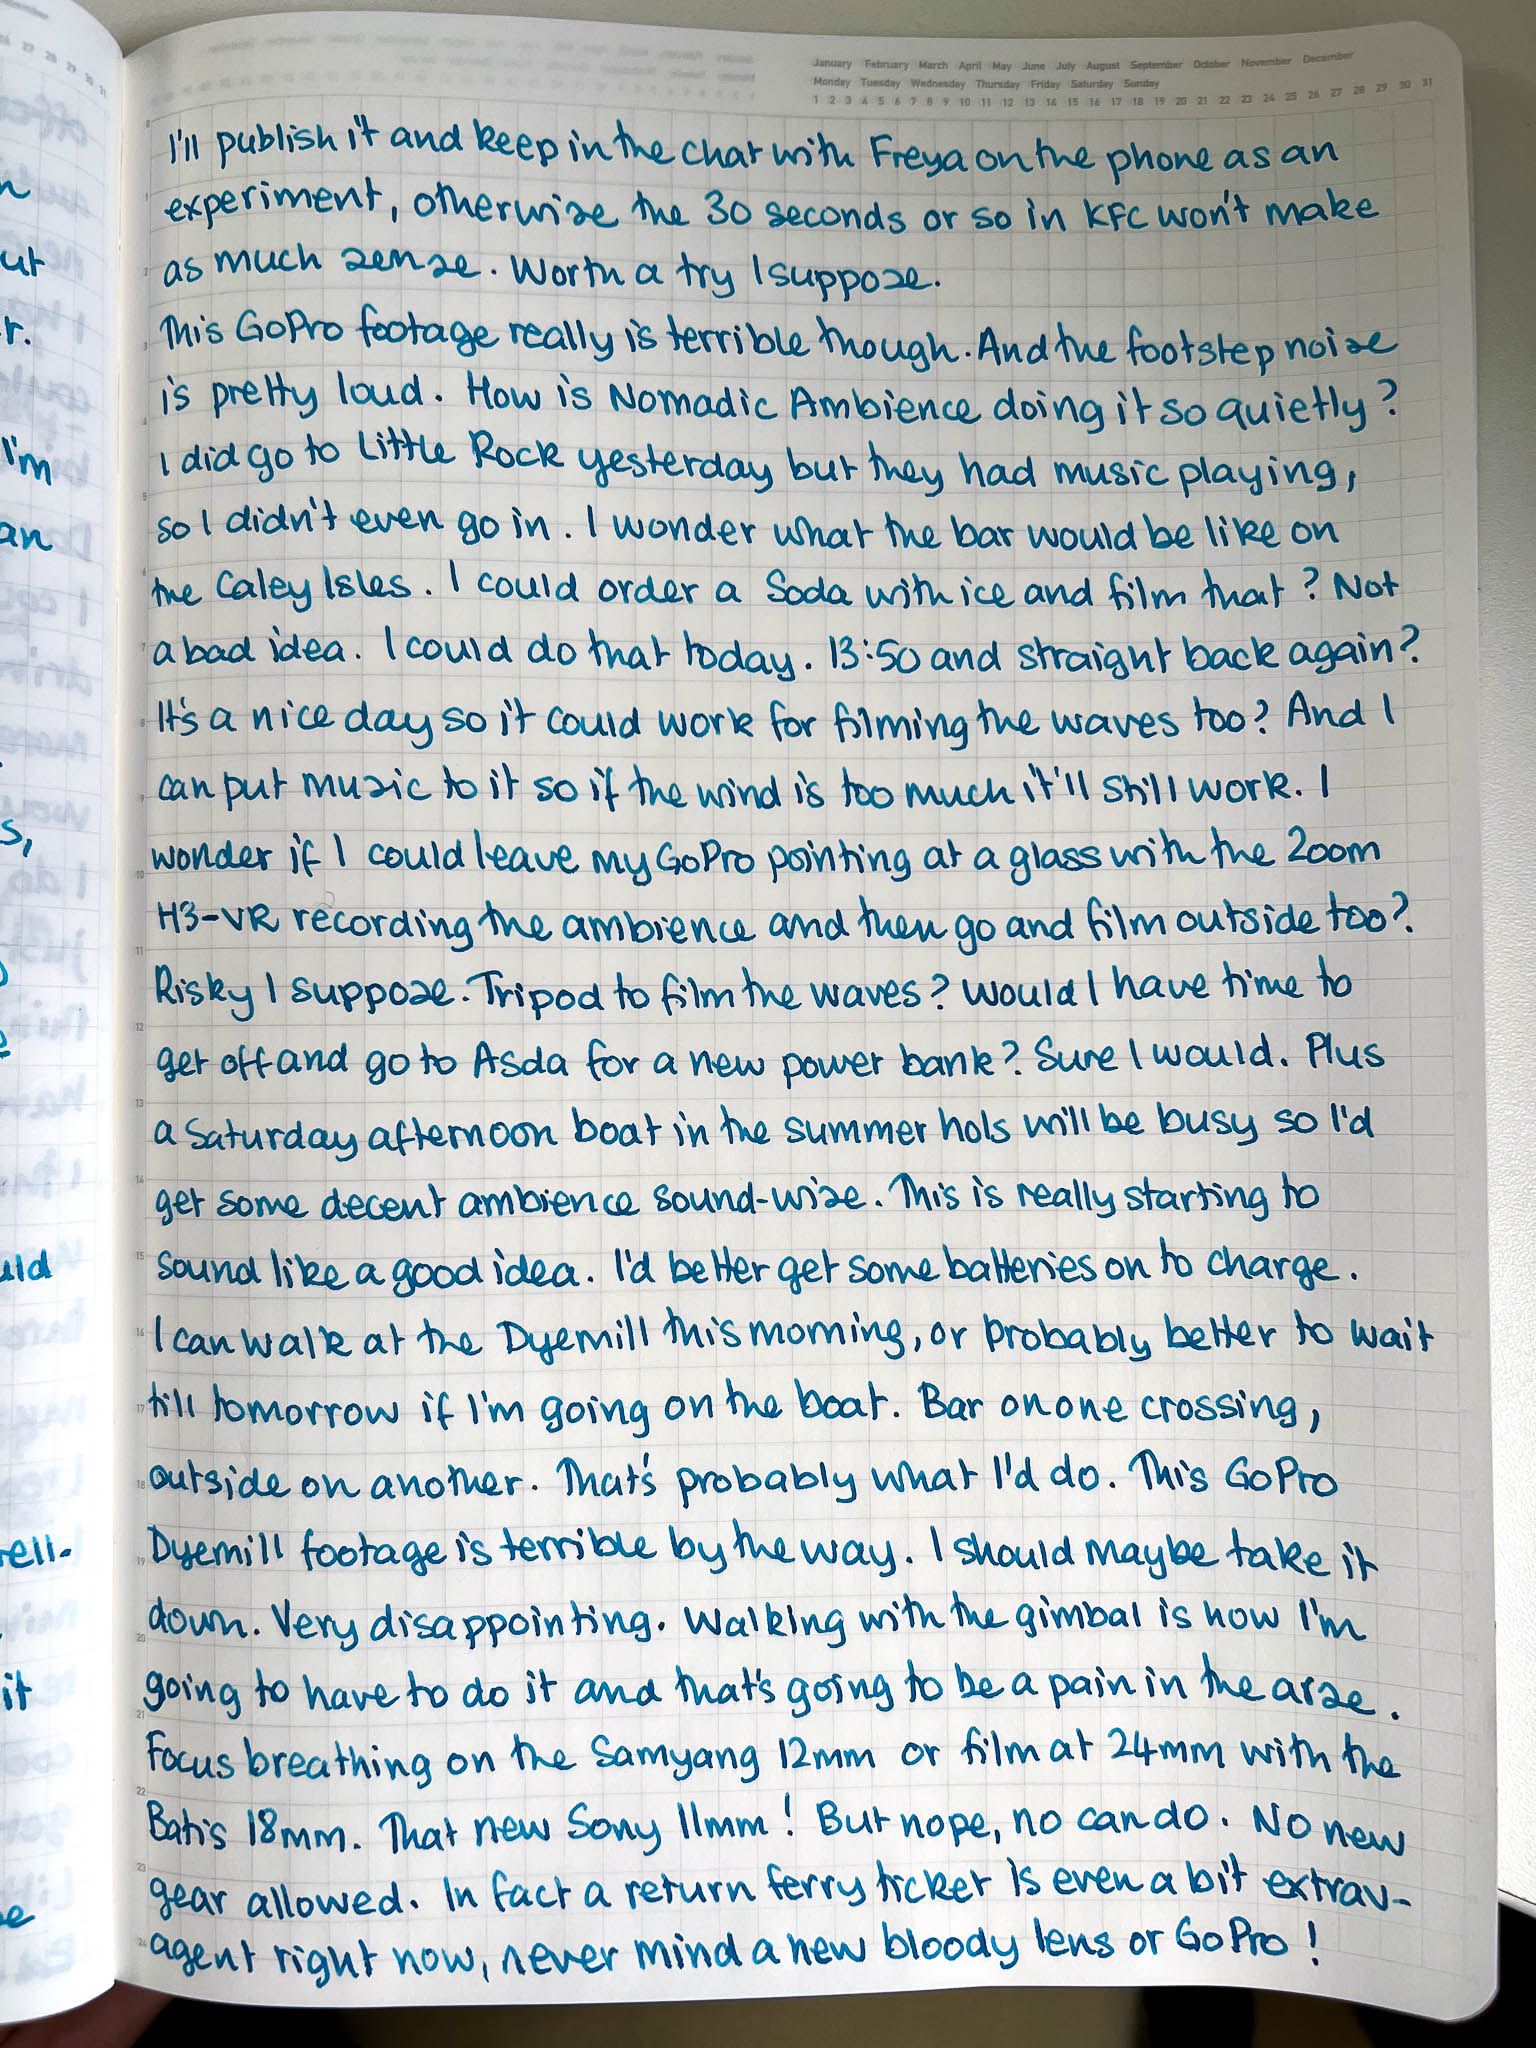 January February March April May June July August September October November December
Monday Tuesday Wednesday Thursday Friday Saturday Sunday
1 2 3 4 5 6 7 8 9 10 11 12 13 14 15 16 17 18 19 20 21 22 23 24 25 26 27 28 29 30 31
I'll publish it and keep in the chat with Freya on the phone as an
experiment, otherwise the 30 seconds or so in KFC won't make
as much sense. Worth a try I suppose.
This GoPro footage really is terrible though. And the footstep noise
is pretty loud. How is Nomadic Ambience doing it so quietly?
I did go to Little Rock yesterday but they had music playing,
so I didn't even go in. I wonder what the bar would be like on
the Caley Isles. I could order a Soda with ice and film that? Not
a bad idea. I could do that today. 13:50 and straight back again?
It's a nice day so it could work for filming the waves too? And I
can put music to it so if the wind is too much it'll still work. I
wonder if I could leave my GoPro pointing at a glass with the Zoom
H3-VR recording the ambience and then go and film outside too?
Risky I suppose. Tripod to film the waves? Would I have time to
get off and go to Asda for a new power bank? Sure I would. Plus
a Saturday afternoon boat in the summer hols will be busy so I'd
get some decent ambience sound-wise. This is really starting to
sound like a good idea. I'd better get some batteries on to charge.
I can walk at the Dyemill this morning, or probably better to wait
till tomorrow if I'm going on the boat. Bar on one crossing,
outside on another. That's probably what I'd do. This GoPro
Dyemill footage is terrible by the way. I should maybe take it
down. Very disappointing. Walking with the gimbal is how I'm
going to have to do it and that's going to be a pain in the arse.
Focus breathing on the Samyang 12mm or film at 24mm with the
Batis 18mm. That new Sony 11mm! But nope, no can do. No new
gear allowed. In fact a return ferry ticket is even a bit extrav-
agent right now, never mind a new bloody lens or GoPro!